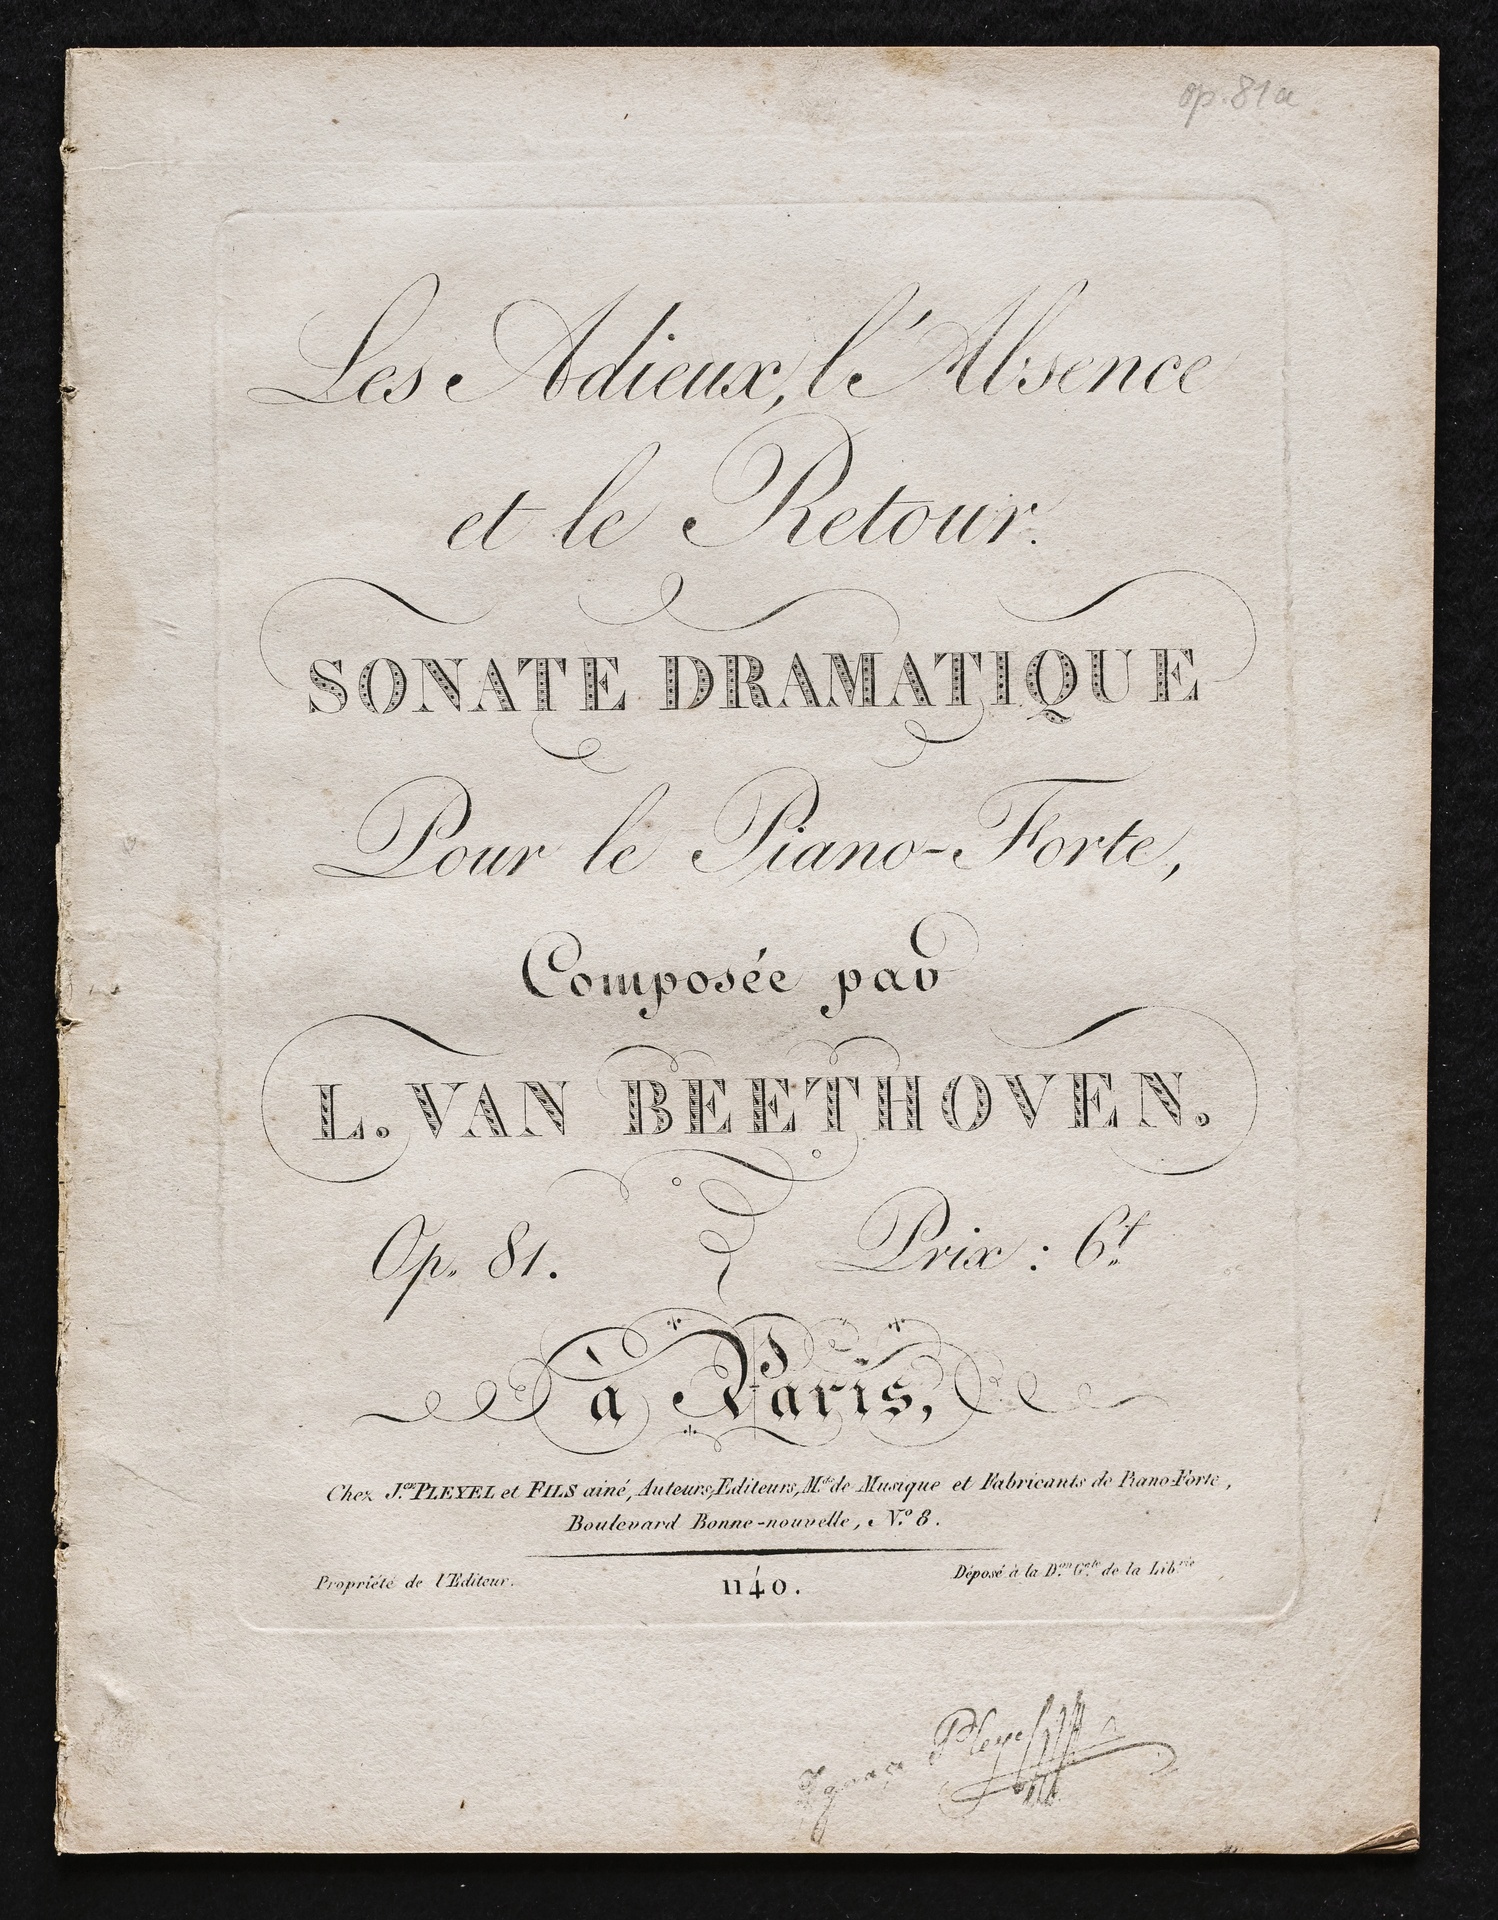 op. 81a
Les Adieux, l'Absence
et le Retour.
SONATE DRAMATIQUE
Pour le Piano-Forte,
Composée par
L. VAN BEETHOVEN.
Op. 81. Prix : 6f.
à Paris,
Chez J.ce PLEYEL et FILS ainé, Auteurs, Editeurs, M.ds de Musique et Fabricants de Piano-Forte,
Boulevard Bonne-nouvelle, N.o 8.
Propriété de l'Editeur. 1140. Déposé à la D.on G.ale de la Lib.rie
Ignace Pleyel